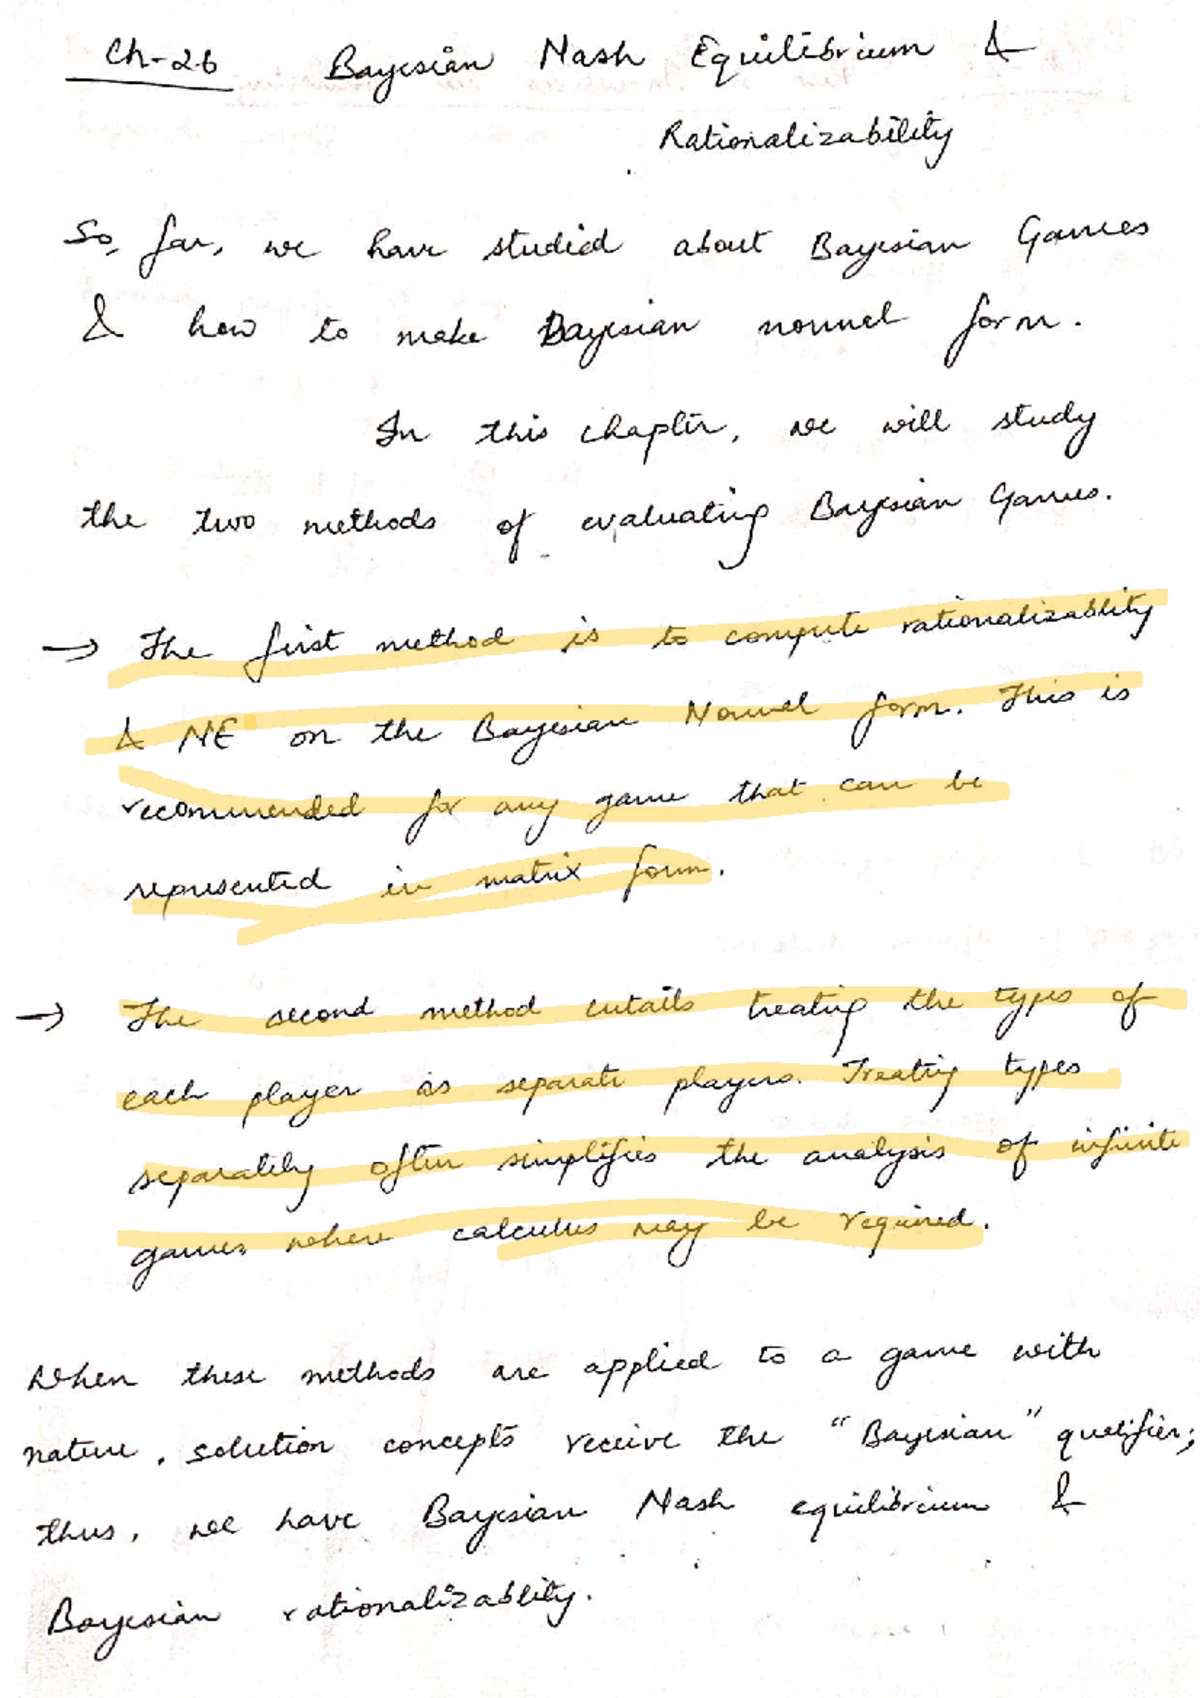 Ch-26 Bayesian Nash Equilibrium &
Rationalizability
So, far, we have studied about Bayesian Games
& how to make Bayesian normal form.
In this chapter, we will study
the two methods of evaluating Bayesian Games.
→ The first method is to compute rationalizablity
& NE on the Bayesian Normal form. This is
recommended for any game that can be
represented in matrix form.
→ The second method entails treating the types of
each player as separate players. Treating types
separately often simplifies the analysis of infinite
games where calculus may be required.
When these methods are applied to a game with
nature, solution concepts receive the "Bayesian" qualifier;
thus, we have Bayesian Nash equilibrium &
Bayesian rationalizablity.